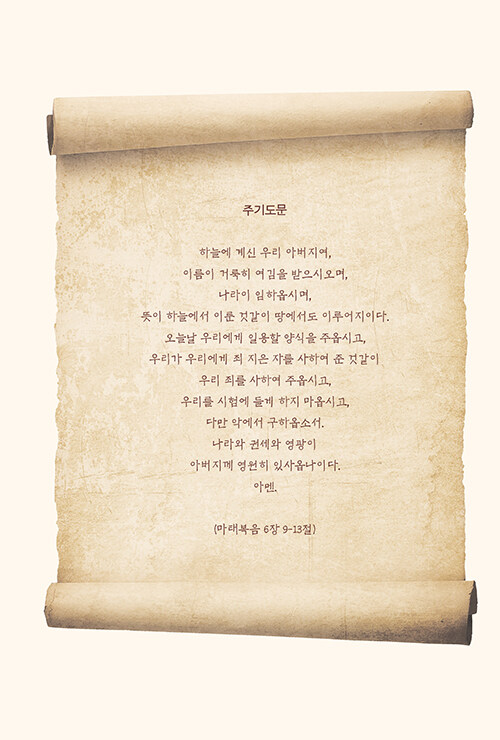 주기도문
하늘에 계신 우리 아버지여,
이름이 거룩히 여김을 받으시오며,
나라이 임하옵시며,
뜻이 하늘에서 이룬 것같이 땅에서도 이루어지이다.
오늘날 우리에게 일용할 양식을 주옵시고,
우리가 우리에게 죄 지은 자를 사하여 준 것같이
우리 죄를 사하여 주옵시고,
우리를 시험에 들게 하지 마옵시고,
다만 악에서 구하옵소서.
나라와 권세와 영광이
아버지께 영원히 있사옵나이다.
아멘.
(마태복음 6장 9-13절)